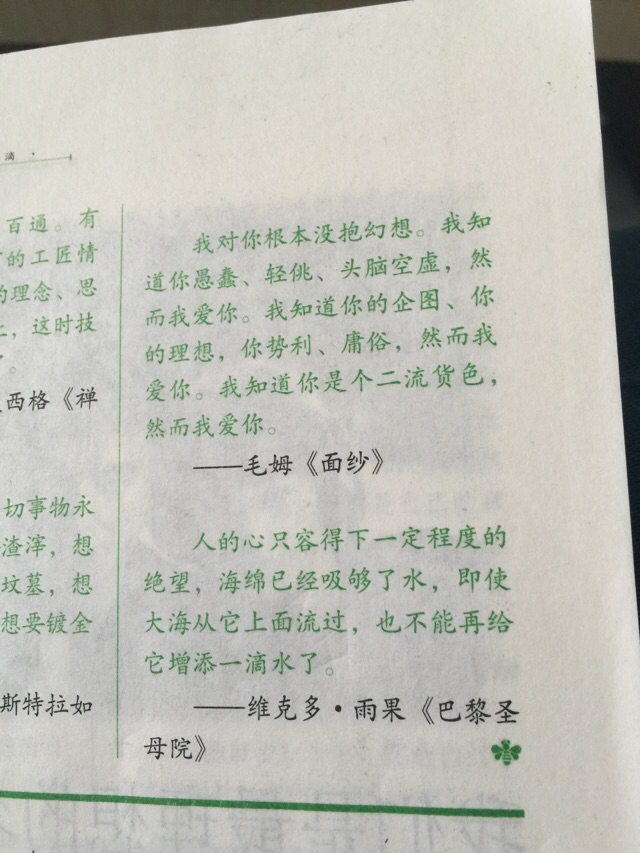 滴
百通。有
的工匠情
的理念、思
，这时技
。
西格《禅
切事物永
渣滓，想
坟墓，想
想要镀金
斯特拉如
我对你根本没抱幻想。我知
道你愚蠢、轻佻、头脑空虚，然
而我爱你。我知道你的企图、你
的理想，你势利、庸俗，然而我
爱你。我知道你是个二流货色，
然而我爱你。
——毛姆《面纱》
人的心只容得下一定程度的
绝望，海绵已经吸够了水，即使
大海从它上面流过，也不能再给
它增添一滴水了。
——维克多·雨果《巴黎圣
母院》